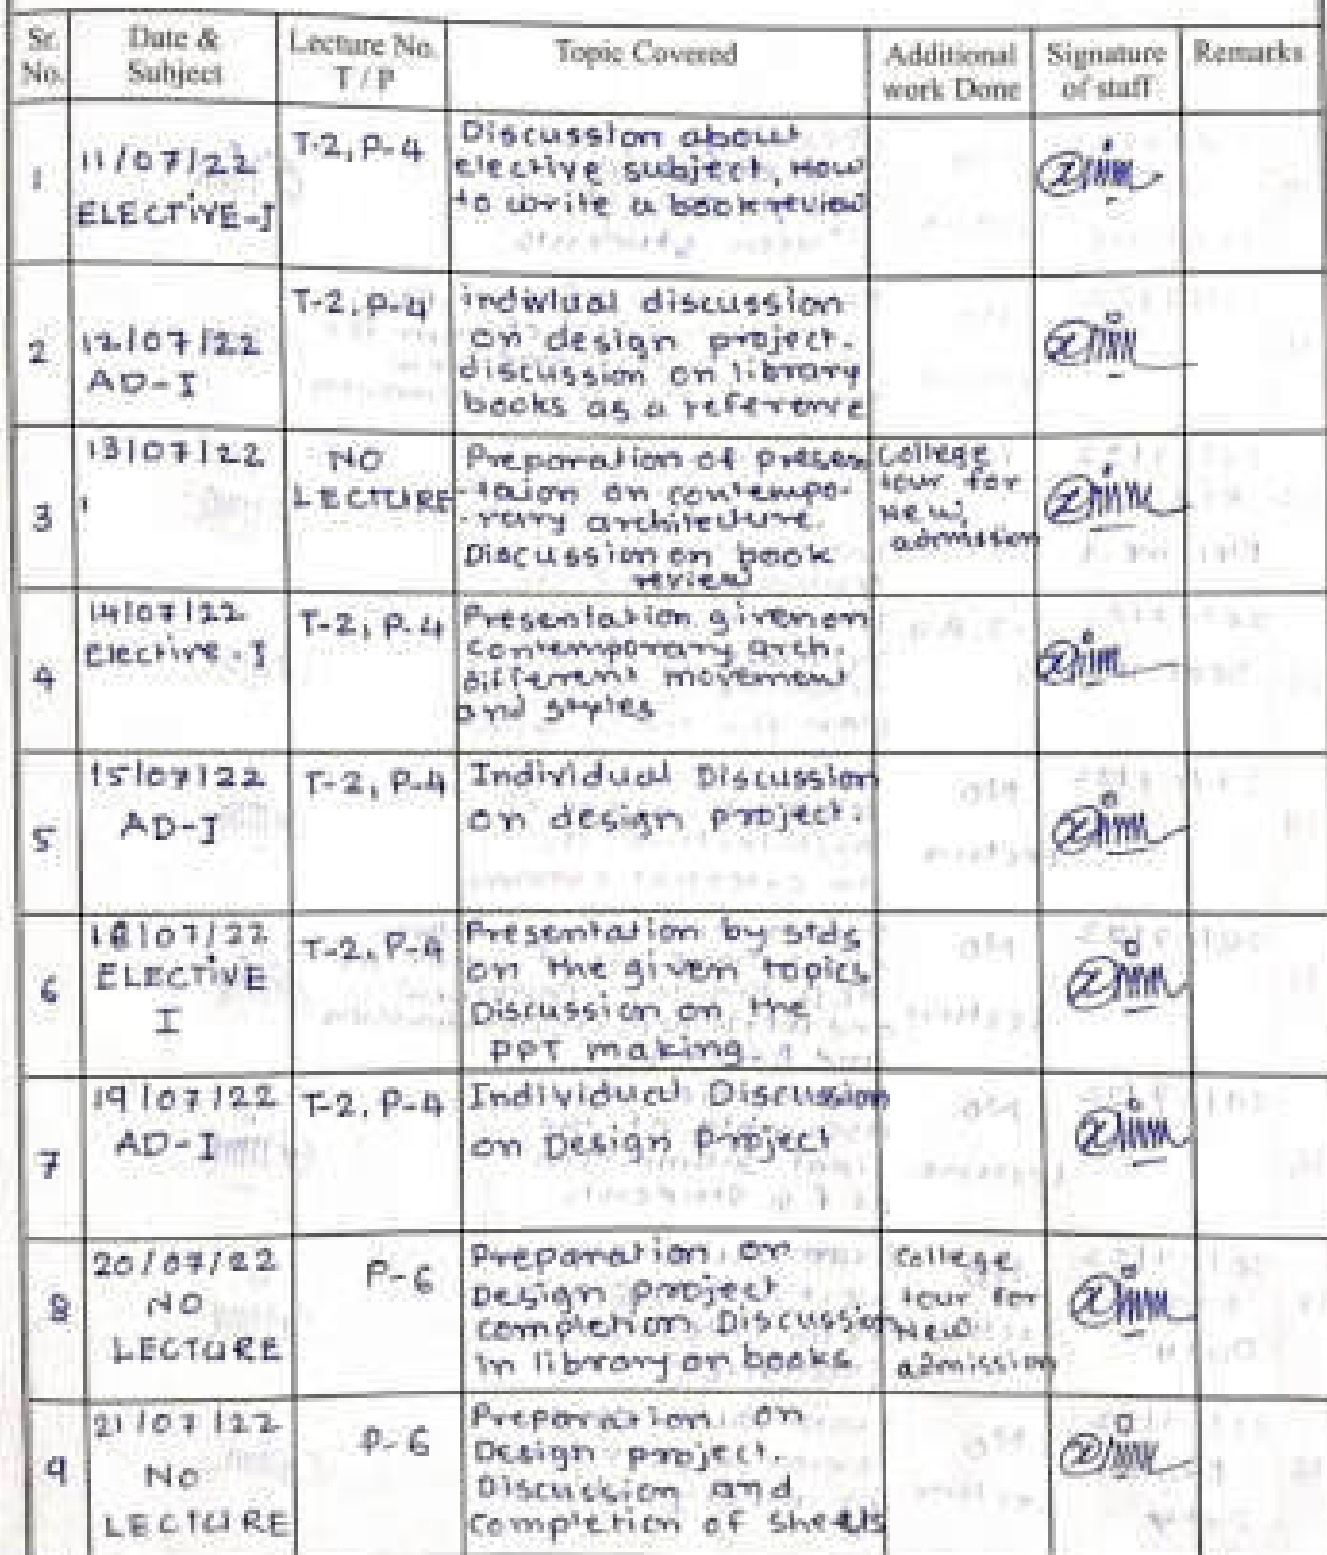 Sr. No. Date & Subject Lecture No. T / P Topic Covered Additional work Done Signature of staff Remarks
1
11/07/22
ELECTIVE-I
T-2, P-4
Discussion about
elective subject, How
to write a book review
2
12/07/22
AD-I
T-2, P-4
indivlual discussion
on design project.
discussion on library
books as a reference
3
13/07/22
NO
LECTURE
Preparation of presen
-taion on contempo-
-rary architecture.
Discussion on book
review
College
tour for
New
admission
4
14/07/22
Elective-I
T-2, P-4
Presentation given on
Contemporary arch.
different movement
and styles
5
15/07/22
AD-I
T-2, P-4
Individual Discussion
on design project.
6
18/07/22
ELECTIVE
I
T-2, P-4
Presentation by stds
on the given topics
Discussion on the
PPT making.
7
19/07/22
AD-I
T-2, P-4
Individual Discussion
on Design Project
8
20/07/22
NO
LECTURE
P-6
Preparation on
Design project
completion. Discussion
in library on books.
College
tour for
New
admission
9
21/07/22
NO
LECTURE
P-6
Preparation on
Design project.
Discussion and
Completion of Sheets